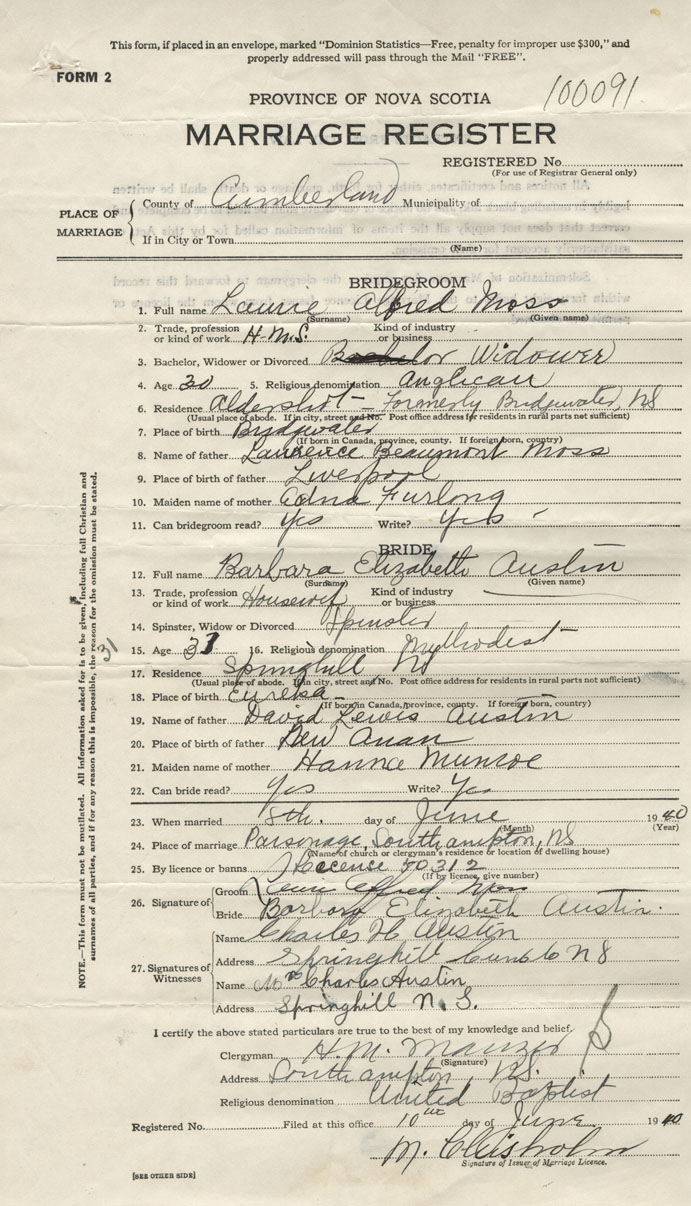 This form, if placed in an envelope, marked "Dominion Statistics—Free, penalty for improper use $300," and
properly addressed will pass through the Mail "FREE".
FORM 2
100091
PROVINCE OF NOVA SCOTIA
MARRIAGE REGISTER
REGISTERED No.
(For use of Registrar General only)
PLACE OF MARRIAGE
County of Cumberland Municipality of
If in City or Town
(Name)
BRIDEGROOM
1. Full name Laurie Alfred Moss
(Surname) (Given name)
2. Trade, profession or kind of work H.M.S. Kind of industry or business
3. Bachelor, Widower or Divorced Bachelor Widower
4. Age 30 5. Religious denomination Anglican
6. Residence Aldershot — Formerly Bridgewater, NS
(Usual place of abode. If in city, street and No. Post office address for residents in rural parts not sufficient)
7. Place of birth Bridgwater
(If born in Canada, province, county. If foreign born, country)
8. Name of father Laurence Beaumont Moss
9. Place of birth of father Liverpool
10. Maiden name of mother Edna Furlong
11. Can bridegroom read? Yes Write? Yes
BRIDE
12. Full name Barbara Elizabeth Austin
(Surname) (Given name)
13. Trade, profession or kind of work Housewif Kind of industry or business
14. Spinster, Widow or Divorced Spinster
15. Age 31 16. Religious denomination Methodest
31
17. Residence Springhill NS
(Usual place of abode. If in city, street and No. Post office address for residents in rural parts not sufficient)
18. Place of birth Eureka
(If born in Canada, province, county. If foreign born, country)
19. Name of father David Lewis Austin
20. Place of birth of father New Anan
21. Maiden name of mother Hanna Munroe
22. Can bride read? Yes Write? Yes
23. When married 8th. day of June 1940
(Month) (Year)
24. Place of marriage Parsonage, Southampton, NS
(Name of church or clergyman's residence or location of dwelling house)
25. By licence or banns Licence 50312
(If by licence, give number)
26. Signature of
Groom Alfred Moss
Bride Barbara Elizabeth Austin.
27. Signatures of Witnesses
Name Charles H Austin
Address Springhill Cumb Co NS
Name Mrs Charles Austin
Address Springhill N.S.
I certify the above stated particulars are true to the best of my knowledge and belief.
Clergyman H.M. Manzer
(Signature)
Address Southampton N.S.
Religious denomination United Baptist
Registered No. Filed at this office 10th day of June 1940
M. Chisholm
Signature of Issuer of Marriage Licence.
[SEE OTHER SIDE]
NOTE.—This form must not be mutilated. All information asked for is to be given, including full Christian and
surnames of all parties, and if for any reason this is impossible, the reason for the omission must be stated.